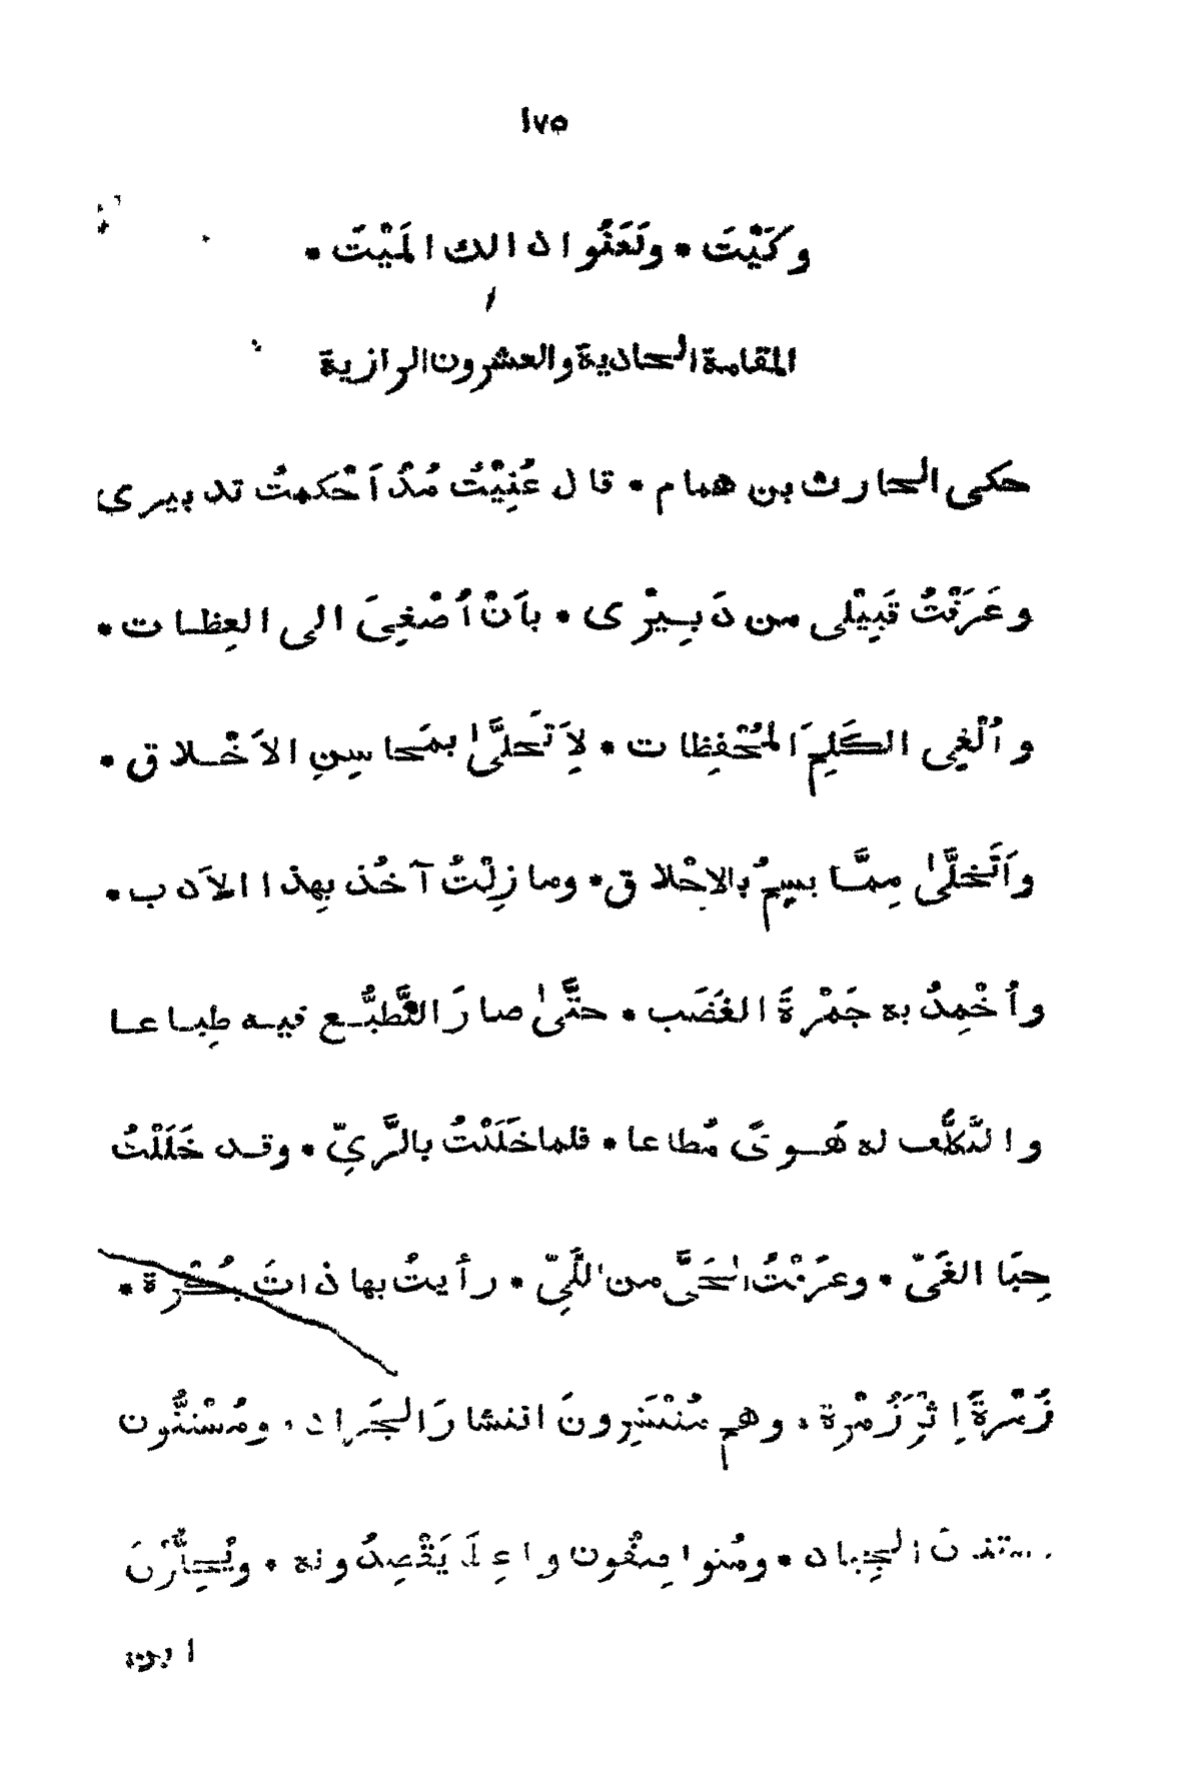 ١٧٥
وكَيْتَ * ولَعَنُوا ذالك المَيْتَ *
المقامة الحادية والعشرون الرازية
حكى الحارث بن همام * قال عُنِيْتُ مُذْ اَحْكمتُ تدبيرى
وعَرَفْتُ قَبِيْلى من دَبِيْرى * باَنْ اُصْغِىَ الى العِظات *
واُلْغِى الكَلِمَ المُحْفِظات * لِاَتَحلَّىٰ بمَحاسِنِ الاَخْلاق *
واَتَخلَّىٰ مِمَّا يسِمُ بالاِخْلاق * وما زِلْتُ آخُذ بهِذا الاَدب *
واُخْمِدُ به جَمْرةَ الغَضَب * حتَّىٰ صارَ التَّطبُّع فيه طِباعا
والتَّكلُّف له هَوىً مُطاعا * فلما حَلَلْتُ بالرَّيِّ * وقد حَلَلْتُ
حِبَا الغَىِّ * وعرَفْتُ الحَىَّ من اللَّيِّ * رأيتُ بها ذاتَ بُكْرة *
زُمْرةً اِثْرَ زُمْرة * وهم مُنْتَشِرونَ انتشارَ الجَراد * ومُسْتنُّون
استنانَ الجِياد * ومُتواصِفُون واعِظًا يَقْصِدُونه * ويُحِلُّوْنَ
ابن